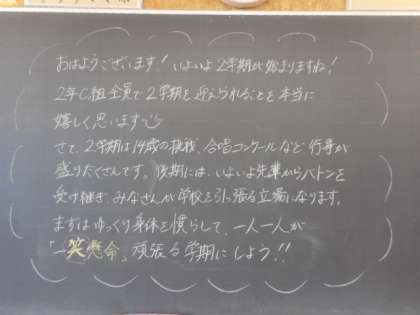 おはようございます！いよいよ2学期が始まりますね！
2年C組全員で2学期を迎えられることを本当に
嬉しく思います
さて、2学期は14歳の挑戦、合唱コンクールなど、行事が
盛りだくさんです。後期には、いよいよ先輩からバトンを
受け継ぎ、みなさんが学校を引っ張る立場になります。
まずはゆっくり身体を慣らして、一人一人が
「一笑懸命」頑張る学期にしよう!!